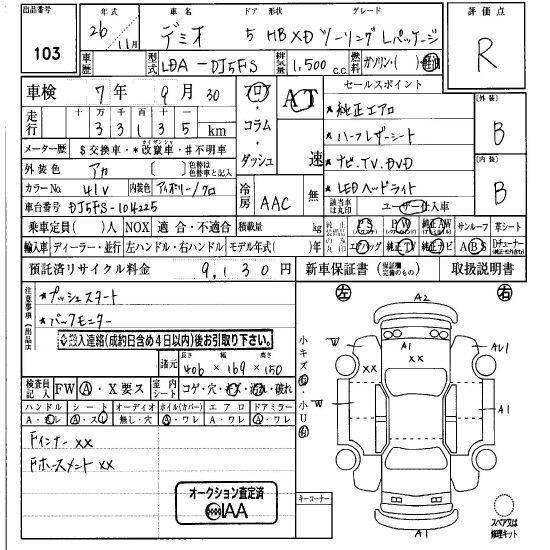 出品番号
103
年式
26年11月
車名
デミオ
ドア 形状
5 HB
グレード
XD ツーリング Lパッケージ
評価点
R
車歴
型式
LDA-DJ5FS
排気量
1,500 c.c.
燃料
ガソリン・( )・軽油
車検
7年 9月 30
フロア・コラム・ダッシュ
AT
速
セールスポイント
走行
十万 万 千 百 十
33135 km
・純正エアロ
外装
B
・ハーフレザーシート
メーター歴
$交換車・*改竄車・#不明車
・ナビ.TV.DVD
内装
B
外装色
アカ
色替は色替車と記入
冷房
AAC
無
・LEDヘッドライト
カラーNo
41V
内装色
アイボリー/クロ
該当車は丸印
ユーザー仕入車
車台番号
DJ5FS-104225
乗車定員( )人
NOX 適合・不適合
積載量
kg
PS
PW
純正AW
サンルーフ
革シート
輸入車
ディーラー・並行
左ハンドル・右ハンドル
モデル年式( )年
エアバッグ
純正TV
純正ナビ
ABS
預託済リサイクル料金
9,130円
新車保証書
取扱説明書
注意事項(出品店)
*プッシュスタート
*バックモニター
入連絡(成約日含め4日以内)後お引取り下さい。
諸元
長さ 幅 高さ
406 × 169 × 150
検査員記入
FW
A・X要ス
室内シート
コゲ・穴・キズ・汚れ・破れ
ハンドル
シート
オーディオ
ホイル(カバー)
エアロ
ドアミラー
A・ス
A・ス
無し・穴
A・ワレ
A・ワレ
A・ワレ
Fインナー XX
Fホースメント XX
オークション査定済
IAA
左
右
小キズ有・小U有
キーコーナー
A2
A1
AU1
W
XX
XX
W
A1
A1
スペア又は修理キット